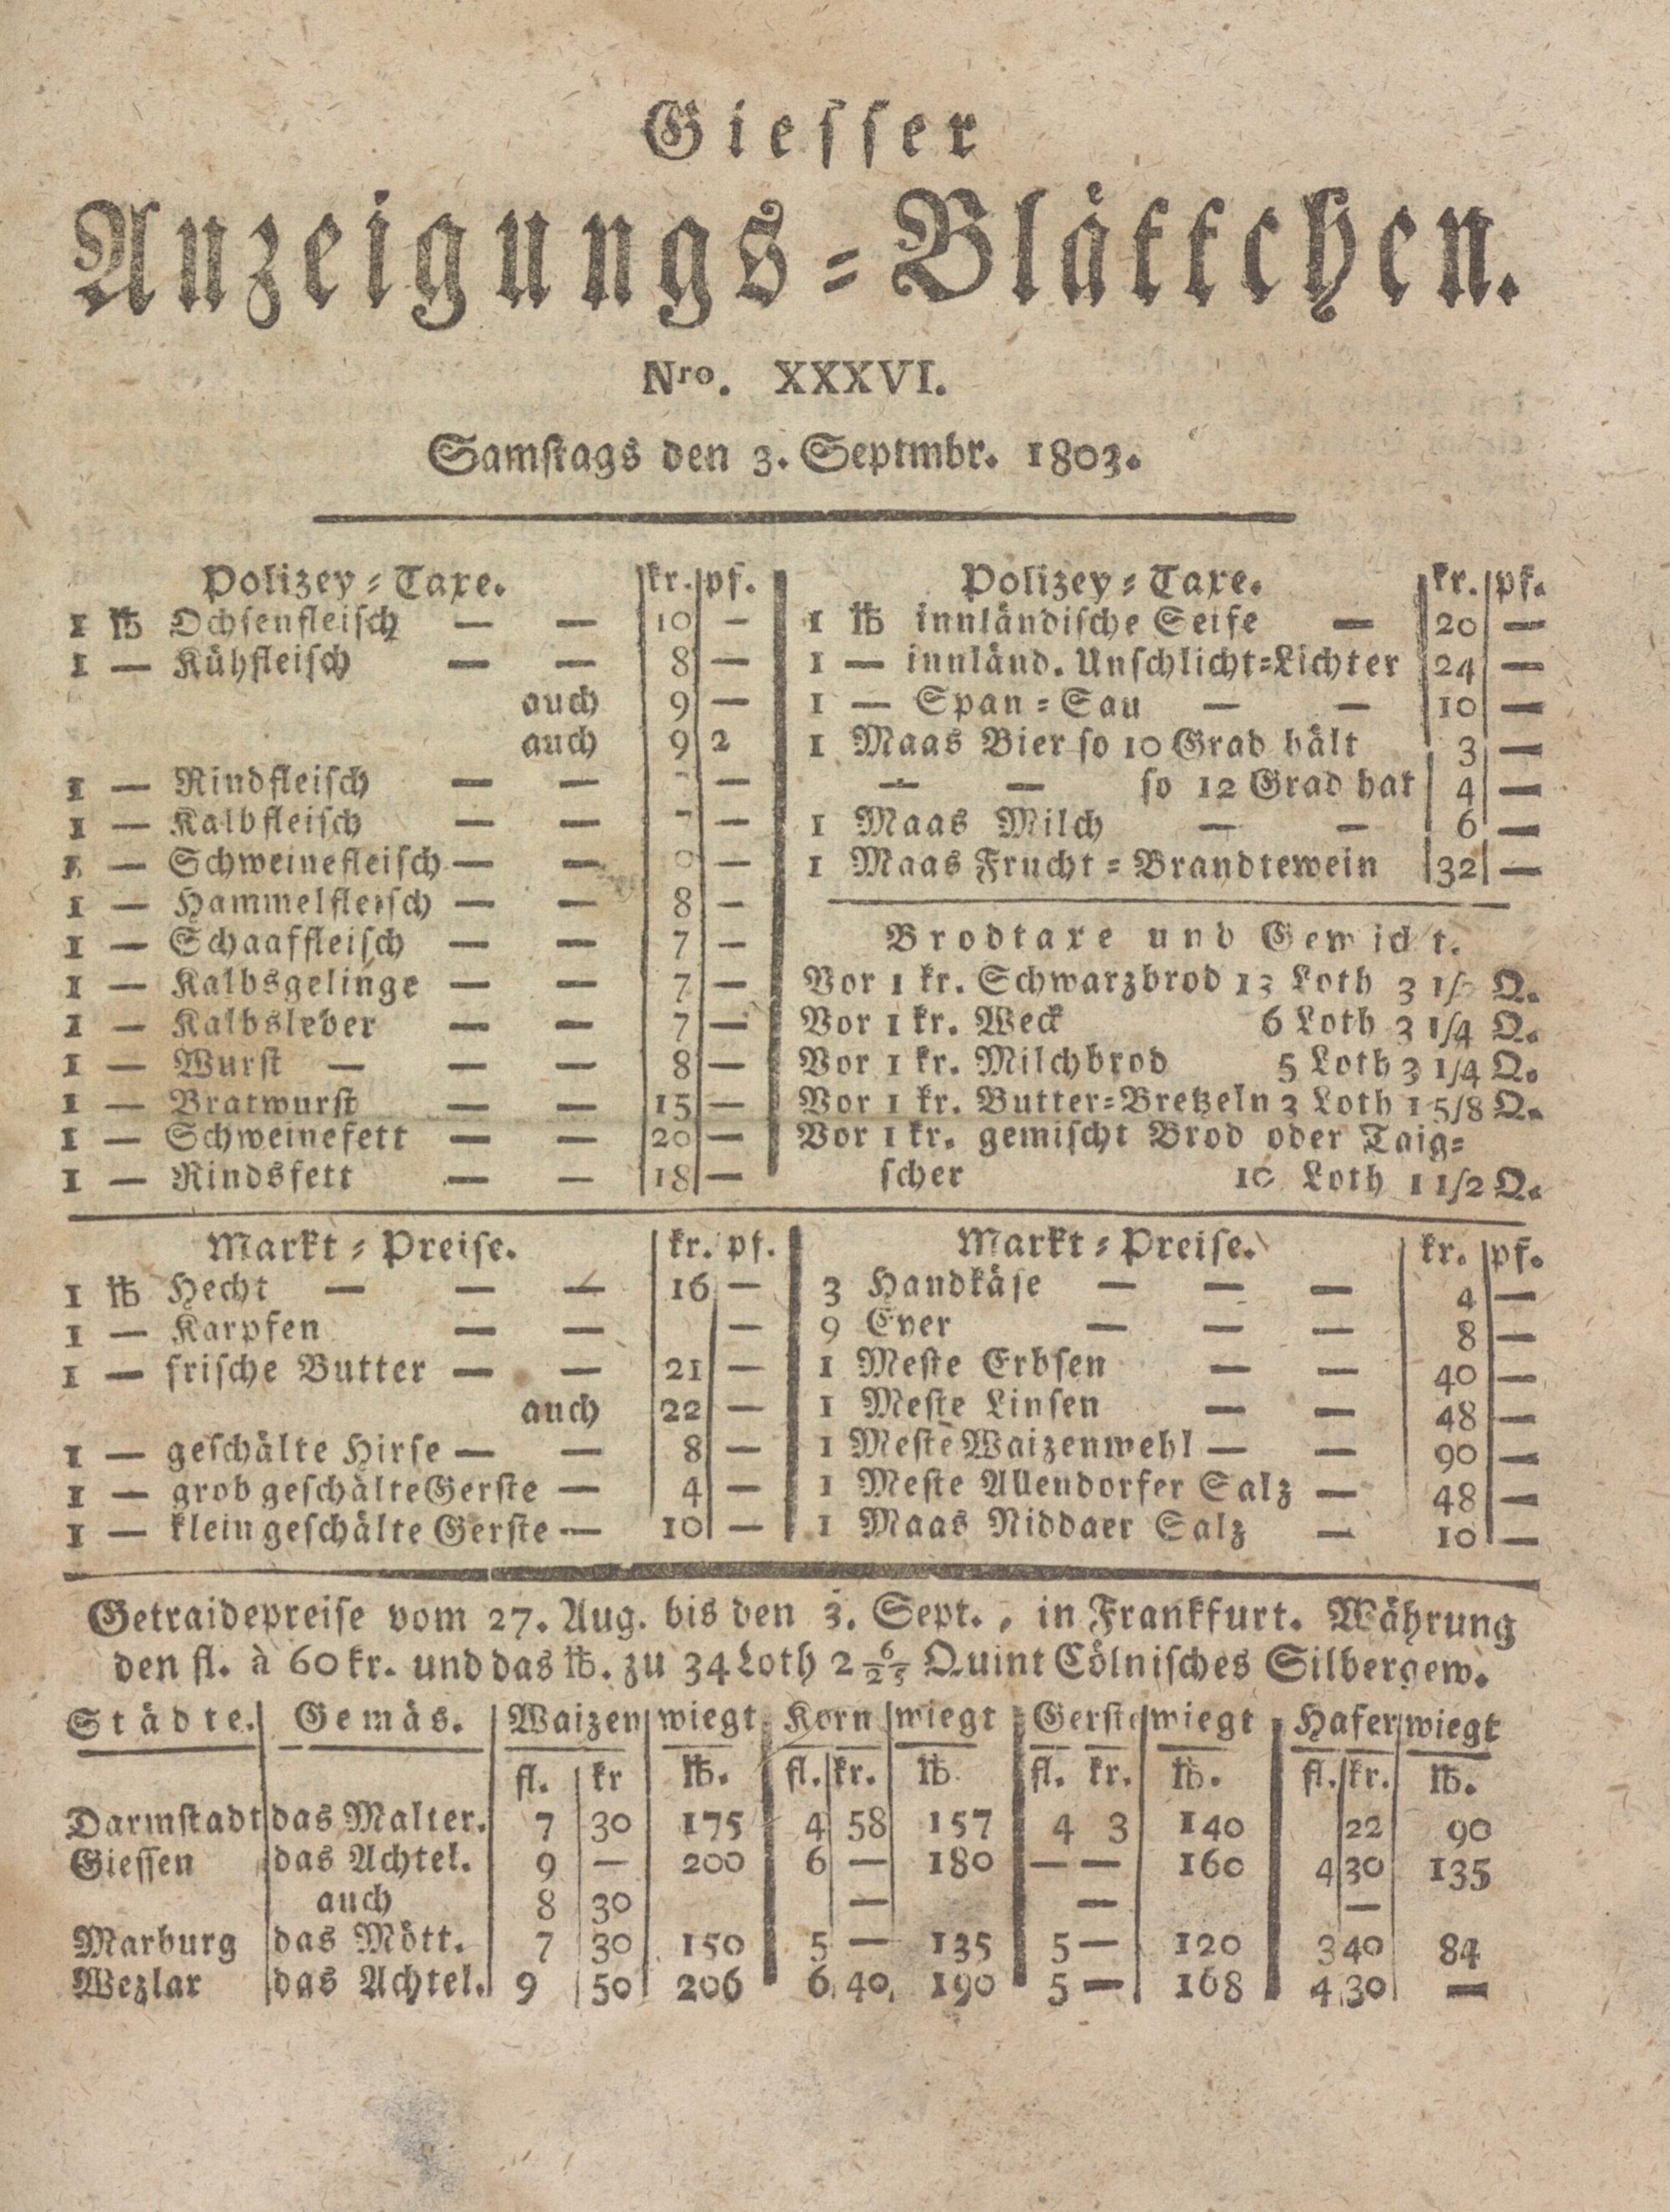 Giesser
Anzeigungs-Blättchen.
Nro. XXXVI.
Samstags den 3. Septmbr. 1803.
Polizey-Taxe. kr. pf.
1 ℔ Ochsenfleisch — — 10 —
1 — Kühfleisch — — 8 —
auch 9 —
auch 9 2
1 — Rindfleisch — — —
1 — Kalbfleisch — — —
— Schweinefleisch — — —
1 — Hammelfleisch — — 8 —
1 — Schaaffleisch — — 7 —
1 — Kalbsgelinge — — 7 —
1 — Kalbsleber — — 7 —
1 — Wurst — — — 8 —
1 — Bratwurst — — 15 —
1 — Schweinefett — — 20 —
1 — Rindsfett — — 18 —
Polizey-Taxe. kr. pf.
1 ℔ innländische Seife — 20 —
1 — innländ. Unschlicht-Lichter 24 —
1 — Span-Sau — — 10 —
1 Maas Bier so 10 Grad hält 3 —
— — so 12 Grad hat 4 —
1 Maas Milch — — 6 —
1 Maas Frucht-Brandtewein 32 —
Brodtaxe und Gewicht.
Vor 1 kr. Schwarzbrod 13 Loth 3 Q.
Vor 1 kr. Weck 6 Loth 3 1/4 Q.
Vor 1 kr. Milchbrod 5 Loth 3 1/4 Q.
Vor 1 kr. Butter-Bretzeln 3 Loth 1 5/8 Q.
Vor 1 kr. gemischt Brod oder Taig-
scher 10 Loth 1 1/2 Q.
Markt-Preise. kr. pf.
1 ℔ Hecht — — — 16 —
1 — Karpfen — — —
1 — frische Butter — — 21 —
auch 22 —
1 — geschälte Hirse — — 8 —
1 — grob geschälte Gerste — 4 —
1 — klein geschälte Gerste — 10 —
Markt-Preise. kr. pf.
3 Handkäse — — — 4 —
9 Eyer — — — 8 —
1 Meste Erbsen — — 40 —
1 Meste Linsen — — 48 —
1 Meste Waizenmehl — — 90 —
1 Meste Allendorfer Salz — 48 —
1 Maas Niddaer Salz — 10 —
Getraidepreise vom 27. Aug. bis den 3. Sept., in Frankfurt. Währung
den fl. à 60 kr. und das ℔. zu 34 Loth 2 6/25 Quint Cölnisches Silbergew.
Städte. Gemäs. Waizen wiegt Korn wiegt Gerste wiegt Hafer wiegt
fl. kr ℔. fl. kr. ℔ fl. kr. ℔. fl. kr. ℔.
Darmstadt das Malter. 7 30 175 4 58 157 4 3 140 22 90
Giessen das Achtel. 9 — 200 6 — 180 — — 160 4 30 135
auch 8 30 — — —
Marburg das Mött. 7 30 150 5 — 135 5 — 120 3 40 84
Wezlar das Achtel. 9 50 206 6 40 190 5 — 168 4 30 —